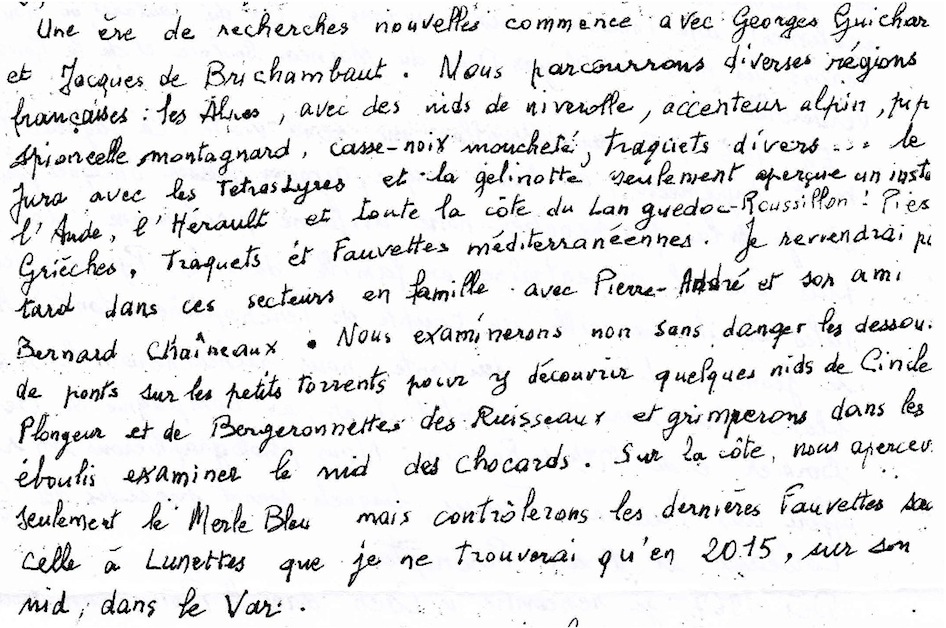 Une ère de recherches nouvelles commence avec Georges Guichar
et Jacques de Brichambaut. Nous parcourrons diverses régions
françaises : les Alpes, avec des nids de niverolle, accenteur alpin, pip
spioncelle montagnard, casse-noix moucheté, traquets divers... le
Jura avec les Tetras Lyres et la gélinotte seulement aperçue un inst
l'Aude, l'Hérault et toute la côte du Languedoc-Roussillon : Pies
Grièches, Traquets et Fauvettes méditerranéennes. Je reviendrai pl
tard dans ces secteurs en famille avec Pierre-André et son ami
Bernard Chaîneaux. Nous examinerons non sans danger les dessou
de ponts sur les petits torrents pour y découvrir quelques nids de Cincle
Plongeur et de Bergeronnettes des Ruisseaux et grimperons dans les
éboulis examiner le nid des Chocards. Sur la côte, nous apercev
seulement le Merle Bleu mais contrôlerons les dernières Fauvettes sau
celle à Lunettes que je ne trouverai qu'en 2015, sur son
nid, dans le Var.